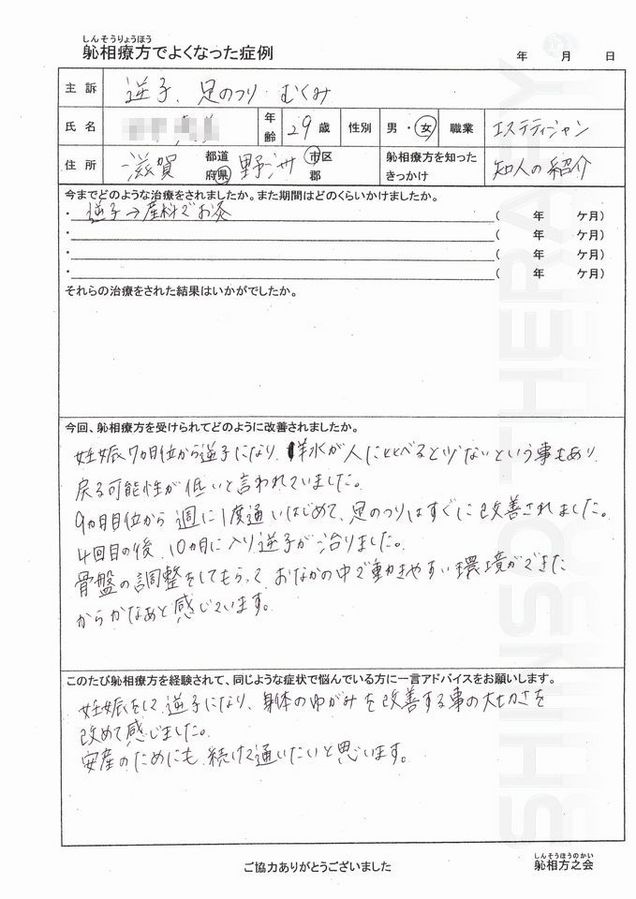 しんそうりょうほう
躰相療方でよくなった症例
年 月 日
主訴 逆子、足のつり・むくみ
氏名 年齢 29歳 性別 男・女 職業 エステティシャン
住所 滋賀 都道府県 野洲 市区郡 躰相療方を知ったきっかけ 知人の紹介
今までどのような治療をされましたか。また期間はどのくらいかけましたか。
・逆子→産科でお灸 ( 年 ケ月)
・ ( 年 ケ月)
・ ( 年 ケ月)
・ ( 年 ケ月)
それらの治療をされた結果はいかがでしたか。
今回、躰相療方を受けられてどのように改善されましたか。
妊娠7ヵ月位から逆子になり、羊水が人に比べると少ないという事もあり
戻る可能性が低いと言われていました。
9ヵ月目位から週に1度通いはじめて、足のつりはすぐに改善されました。
4回目の後、10ヵ月に入り逆子が治りました。
骨盤の調整をしてもらって、おなかの中で動きやすい環境ができた
からかなあと感じています。
このたび躰相療方を経験されて、同じような症状で悩んでいる方に一言アドバイスをお願いします。
妊娠をして逆子になり、身体のゆがみを改善する事の大切さを
改めて感じました。
安産のためにも、続けて通いたいと思います。
ご協力ありがとうございました
しんそうほうのかい
躰相方之会
SHINSO-THERAPY.